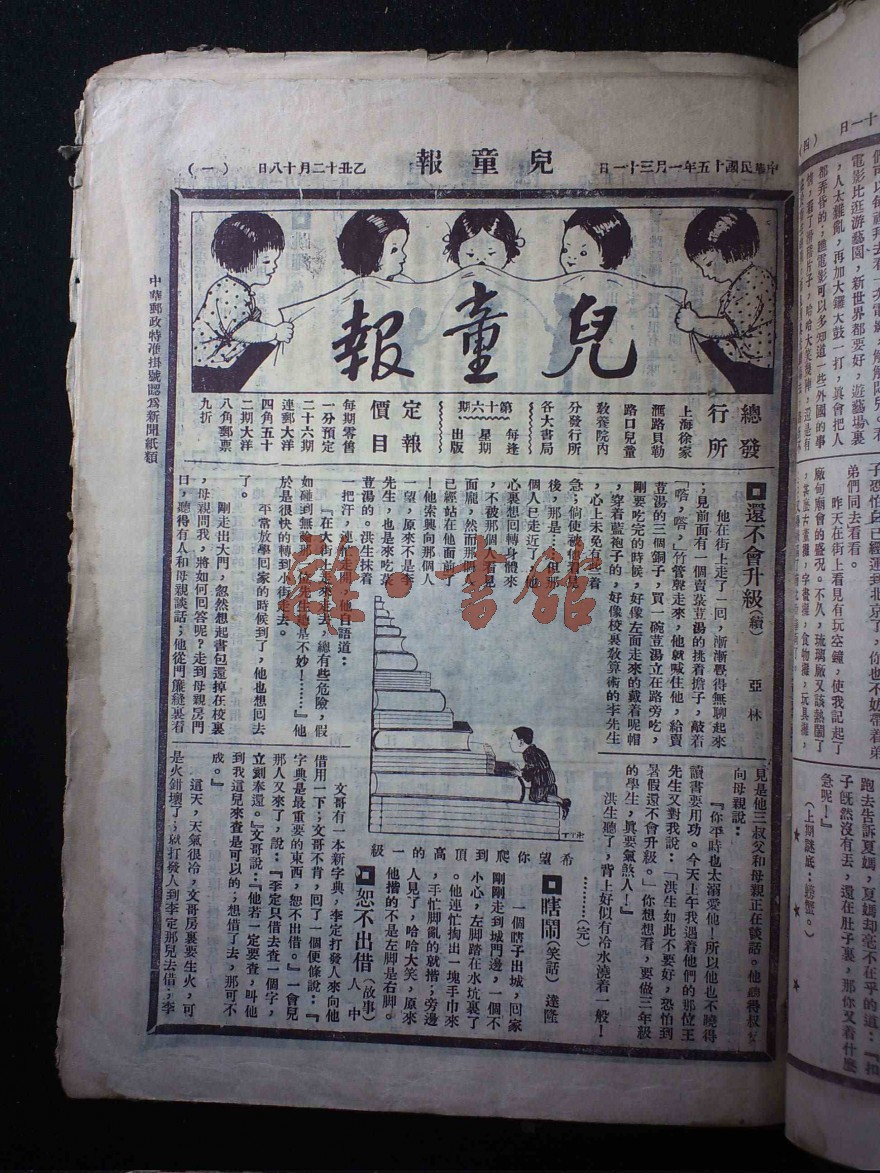 中華民國十五年一月三十一日
兒童報
乙丑十二月十八日
（一）
兒童報
中華郵政特准掛號認為新聞紙類
總發行所
上海徐家
滙路貝勒
路口兒童
教養院內
分發行所
各大書局
第十六期
每逢
星期
出版
定報價目
每期零售
一分預定
二十六期
連郵大洋
四角五十
二期大洋
八角郵票
九折
還不會升級（續）
亞林
他在街上走了一回，漸漸覺得無聊起來
；見前面有一個賣菉荳湯的挑着擔子，敲着
『嗒，嗒，』竹管聲走來，他就喊住他，給賣
荳湯的三個銅子，買一碗荳湯立在路旁吃，
剛要吃完的時候，好像左面走來的戴着呢帽
，穿着藍袍子的，好像校裏教算術的李先生
，心上未免有些着
急；倘使被他看見
後，那是……但那
個人已走近了；他
心裏想回轉身體來
，不被那個人看見
面龐，然而那個人
已經站在他面前了
！他索興向那個人
一望，原來不是李
先生，也是來吃菉
荳湯的。洪生抹着
一把汗，連忙走開，他自語道：
『在大街上走來走去，總有些危險，假
如碰到無論那一位先生總是不妙！……』他
於是很快的轉到小街走去。
平常放學回家的時候到了，他也想回去
了。
剛走出大門，忽然想起書包還掉在校裏
，母親問我，將如何回答呢？走到母親房門
口，聽得有人和母親談話；他從門簾縫裏看
見是他三叔父和母親正在談話。他聽得叔父
向母親說：
『你平時也太溺愛他！所以他也不曉得
讀書要用功。今天上午我遇着他們的那位王
先生又對我說：「洪生如此不要好，恐怕到
暑假還不會升級。」你想想看，要做三年級
的學生，真要氣煞人！』
洪生聽了，背上好似有冷水澆着一般！
………（完）
希望你爬到頂高的一級
瞎鬧（笑話）
達隆
一個瞎子出城，回家
剛剛走到城門邊，一個不
小心，左脚踏在水坑裏了
。他連忙掏出一塊手巾來
，手忙脚亂的就揩；旁邊
人見了，哈哈大笑，原來
他揩的不是左脚是右脚。
恕不出借（故事）
人中
文哥有一本新字典，李定打發人來向他
借用一下；文哥不肯，回了一個便條說：『
字典是最重要的東西，恕不出借。』一會兒
那人又來了，說：『李定只借去查一個字，
立刻奉還。』文哥說：『他若一定要查，叫他
到我這兒來查是可以的；想借了去，那可不
成。』
這天，天氣很冷，文哥房裏要生火，可
是火鉗壞了；就打發人到李定那兒去借；李
雜·書館
十一日
（四）
電影比逛游藝園，新世界都要好，遊藝場裏
，人太雜亂，再加大鑼大鼓一打，真會把人
都弄昏的；瞧電影可以多知道一些外國的事
弟們同去看看。
昨天在街上看見有玩空鐘，使我記起了
廠甸廟會的盛况。不久，琉璃廠又該熱鬧了
，甚麽古董攤，字畫攤，食物攤，玩具攤，
跑去告訴夏媽，夏媽却毫不在乎的道：『和
子旣然沒有丟，還在肚子裏，那你又着什麽
急呢！』
（上期謎底：螃蟹。）